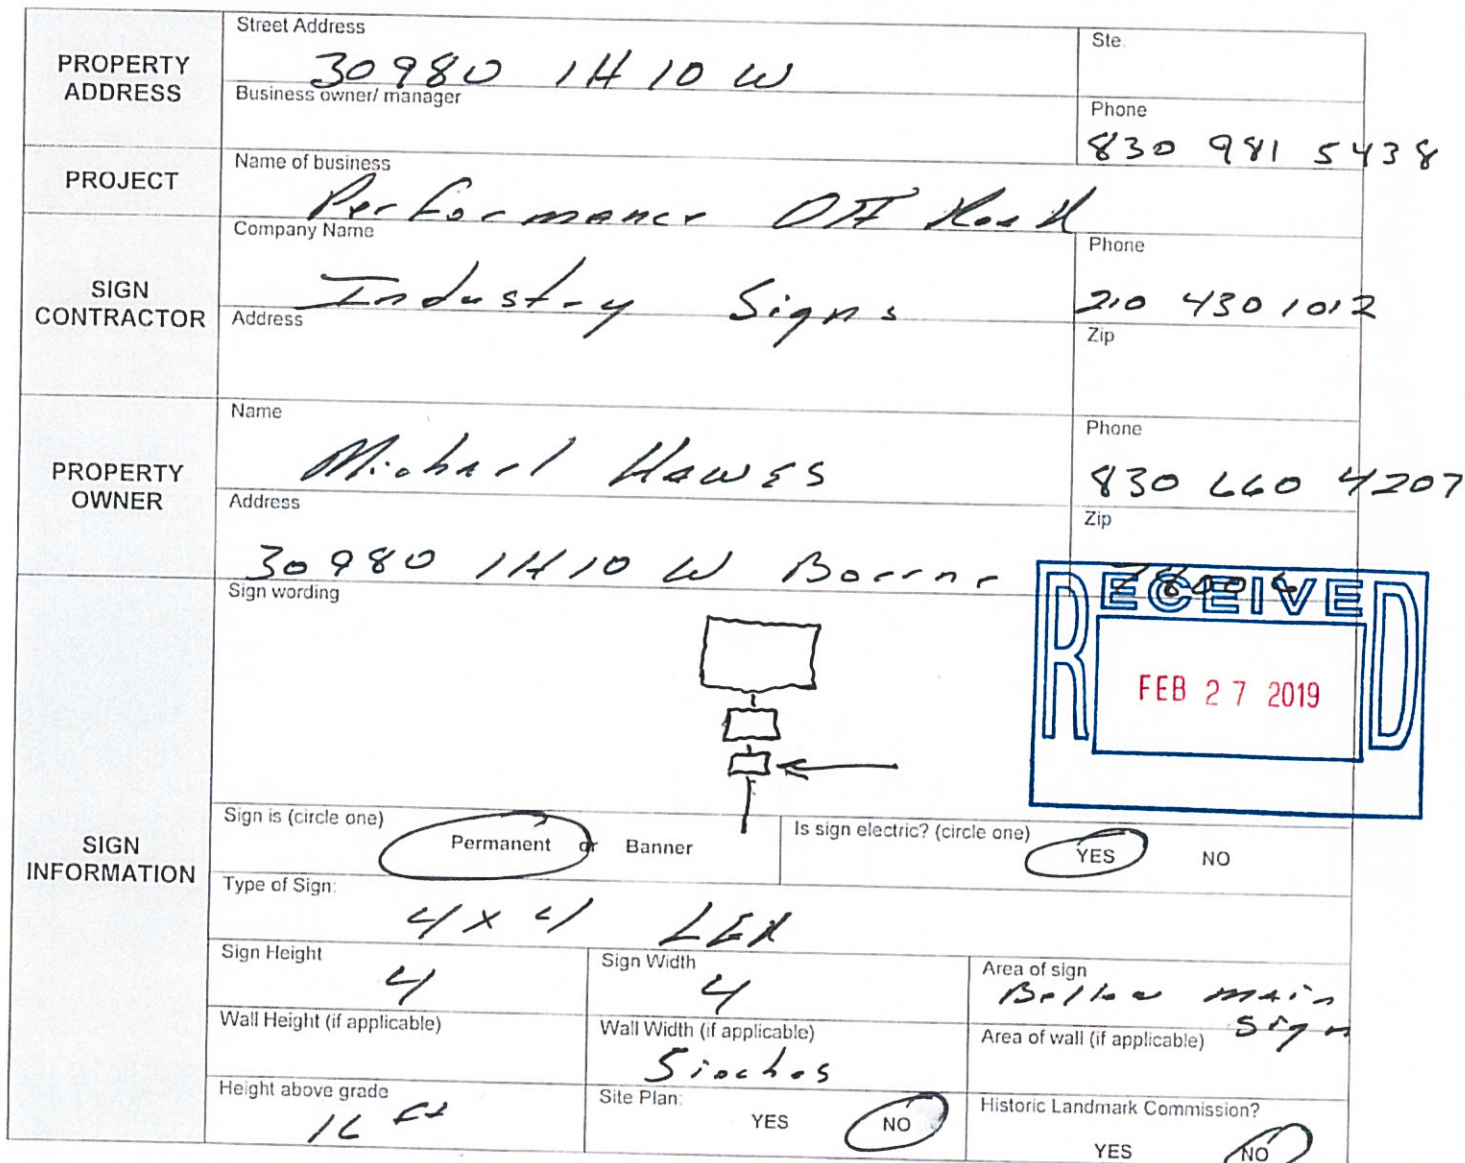 Street Address
Ste.
PROPERTY
ADDRESS
30980 IH 10 W
Business owner/ manager
Phone
830 981 5438
PROJECT
Name of business
Performance Off Road
SIGN
CONTRACTOR
Company Name
Phone
Industry Signs
210 430 1012
Address
Zip
PROPERTY
OWNER
Name
Phone
Michael Hawes
830 660 4207
Address
Zip
30980 IH 10 W Boerne 78006
RECEIVED
FEB 27 2019
SIGN
INFORMATION
Sign wording
Sign is (circle one)
Permanent or Banner
Is sign electric? (circle one)
YES NO
Type of Sign:
4 x 4 LED
Sign Height
4
Sign Width
4
Area of sign
Bellow main
sign
Wall Height (if applicable)
Wall Width (if applicable)
5 inches
Area of wall (if applicable)
Height above grade
16 ft
Site Plan:
YES NO
Historic Landmark Commission?
YES NO